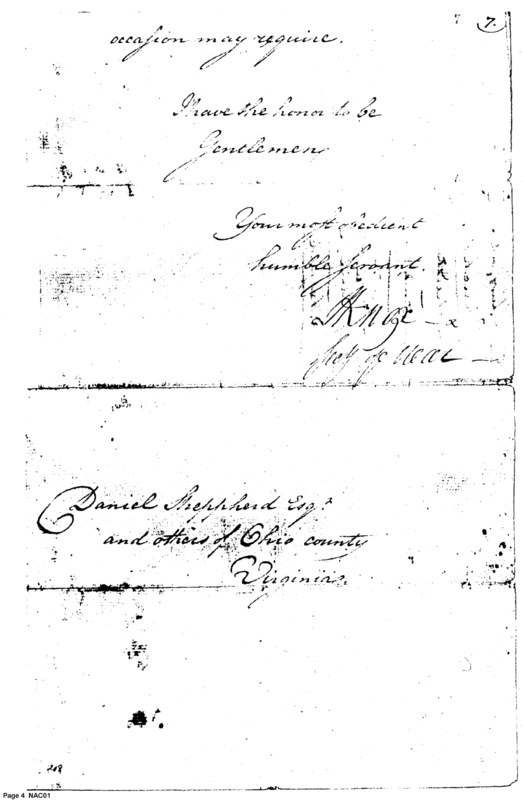 7.
occasion may require.
I have the honor to be
Gentlemen
Your most obedient
humble Servant.
HKnox
Secy of War
Daniel Sheppherd Esqr.
and others of Ohio county
Virginia.
208
Page 4 NAC01